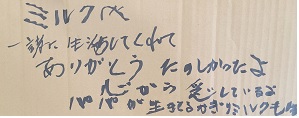 ミルクへ
一諸に生活してくれて
ありがとう たのしかったよ
心から愛しているよ
パパが生きてるかぎりミルクも